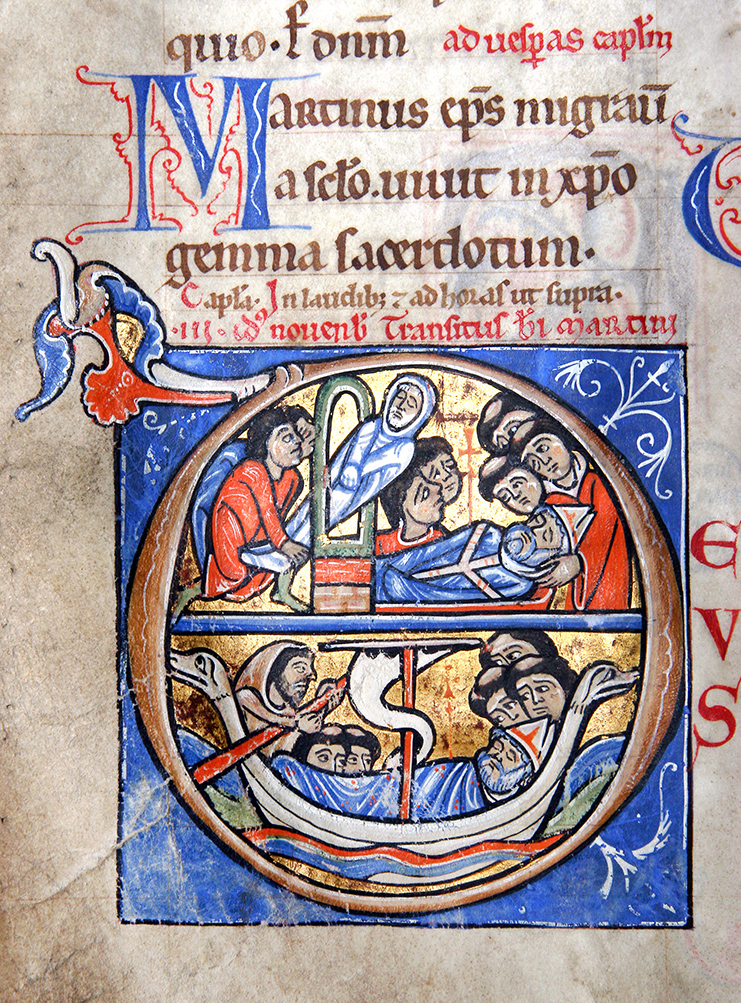 quio. ł dnm̄ ad uesp̄as capłm
Martinus ep̄s migrau̅
a scło. uiuit in xp̄o
gemma sacerdotum.
Capła. In laudib; ⁊ ad horas ut supra.
.III. id9 nouenb̄ Transitus bi̅ martini
D
E
V
S